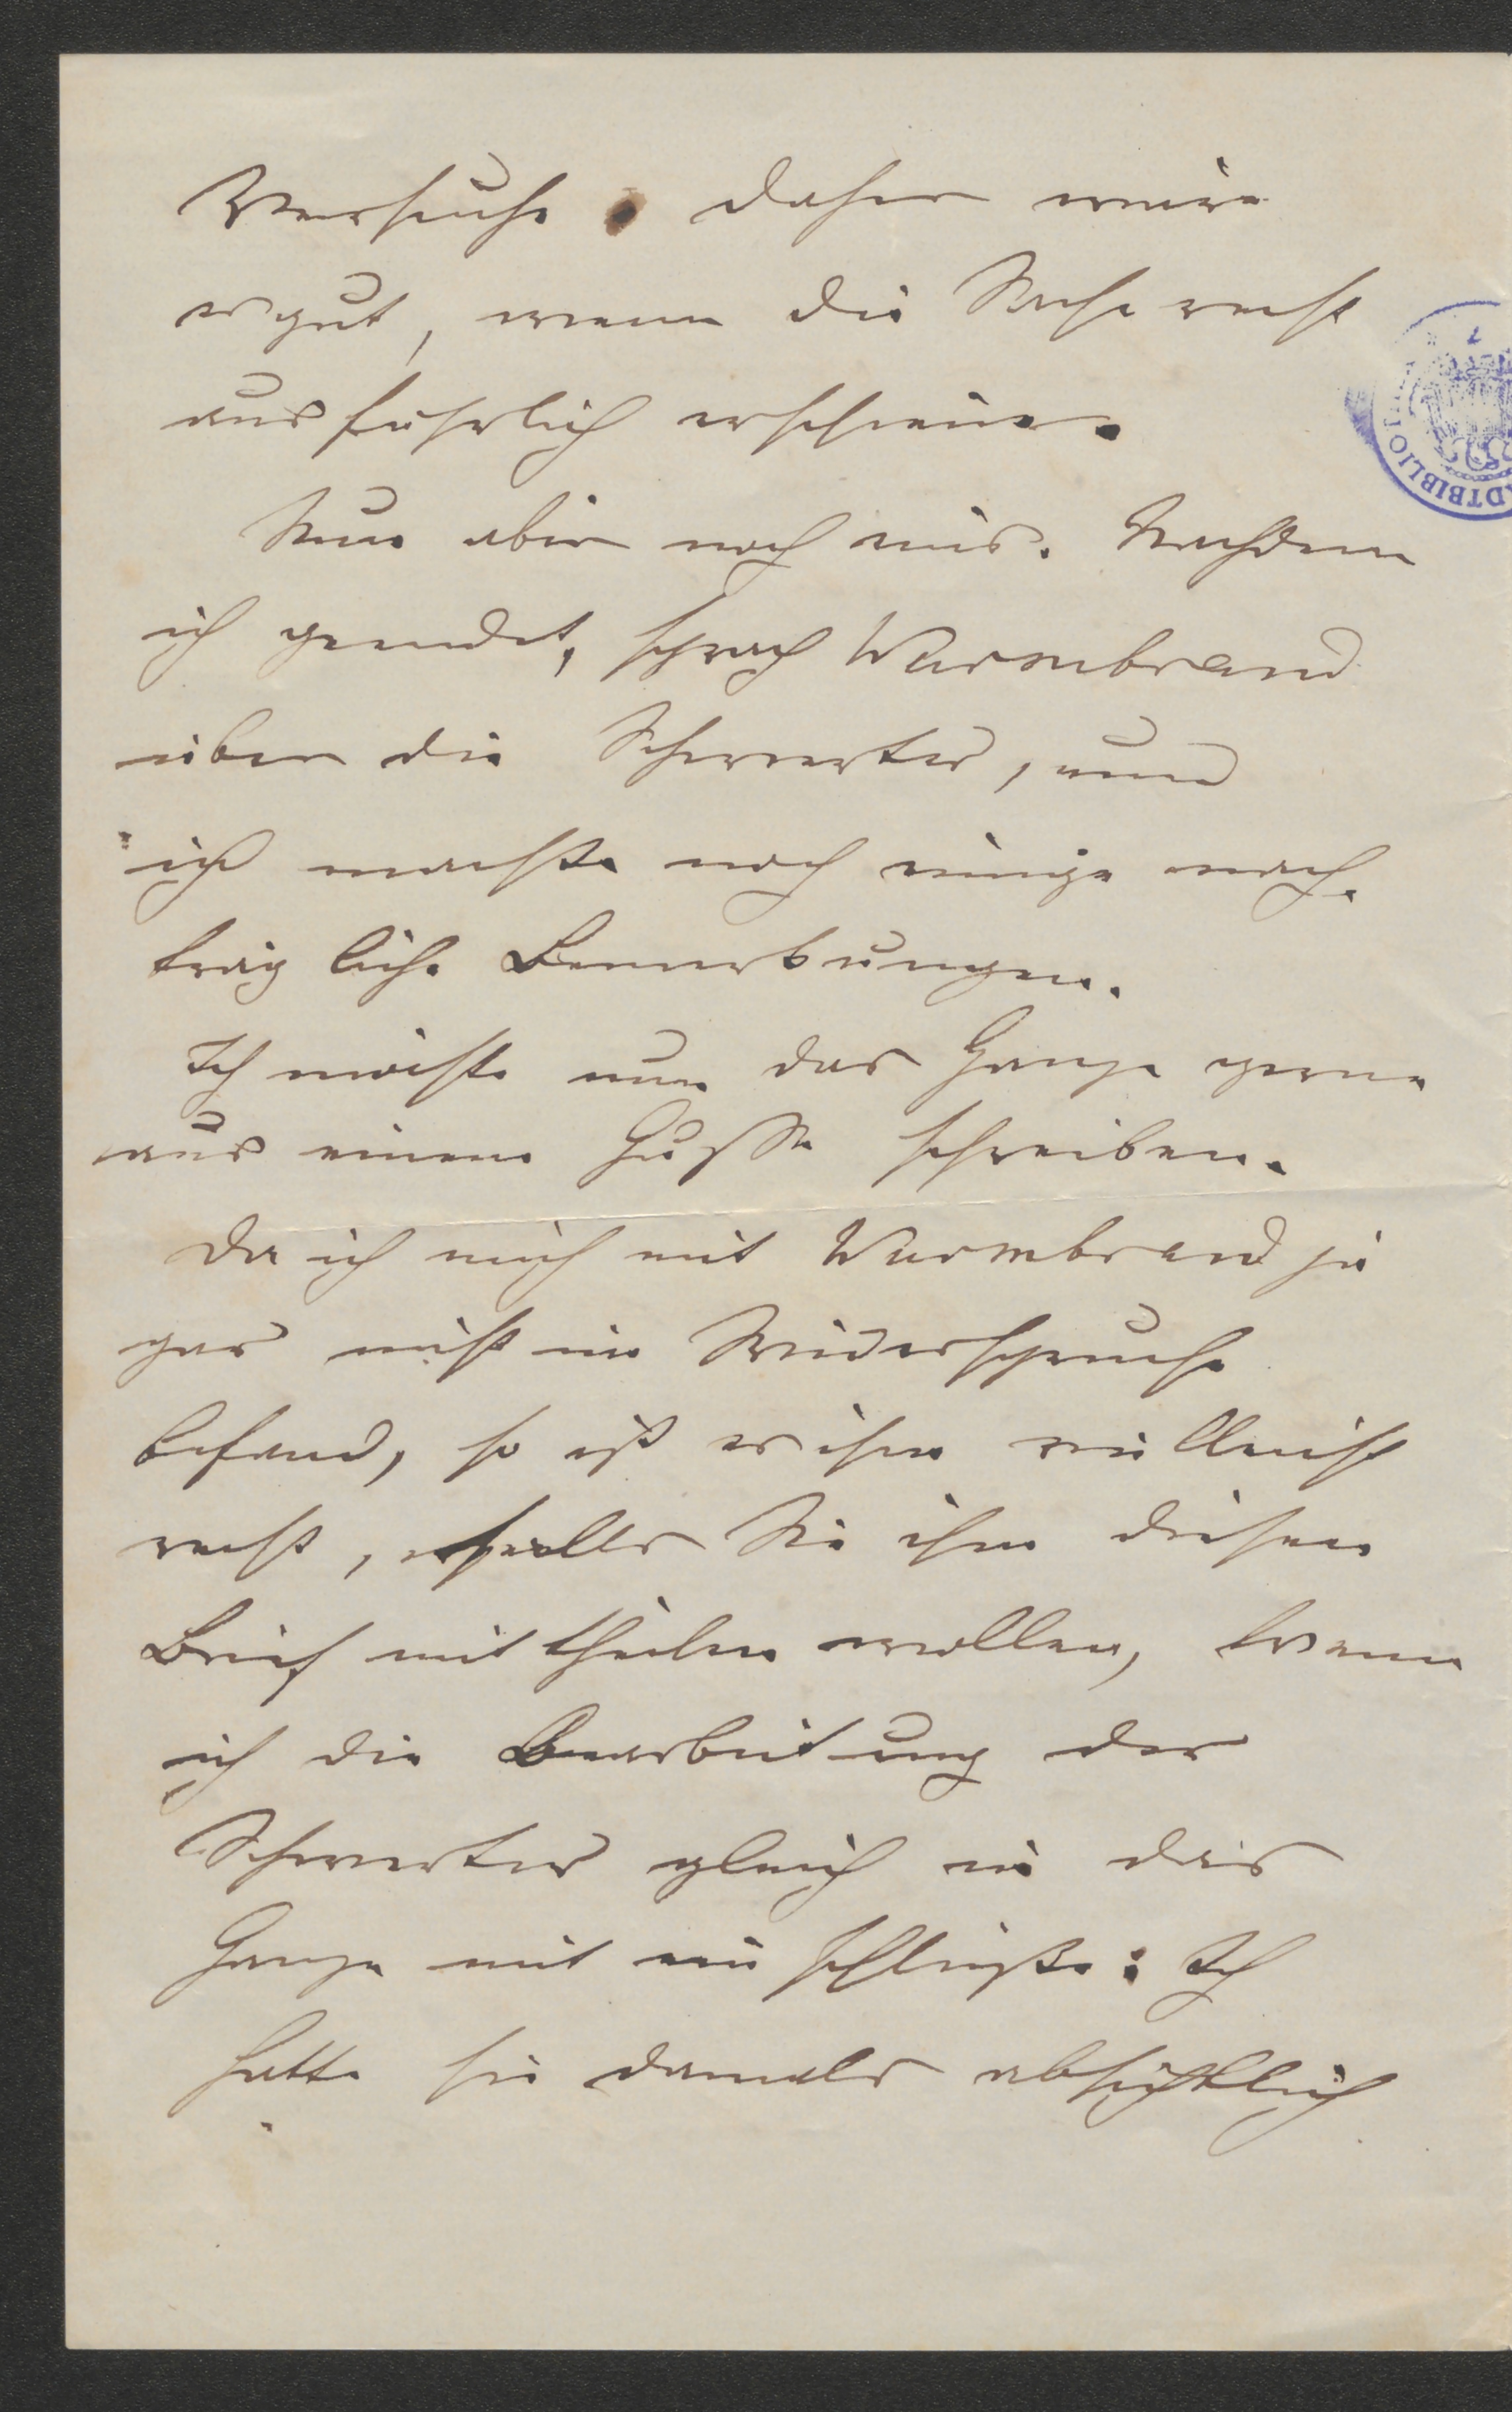 Versuche daher wäre
es gut, wenn die Sache recht
ausführlich erschiene.
Nun aber noch eins. Nachdem
ich geendet, sprach Wurmbrand
über die Schwerter, und
ich machte noch einige nach-
trägliche Bemerkungen.
Ich möchte nun das Ganze gerne
aus einem Gusse schreiben.
Da ich mich mit Wurmbrand ja
gar nicht im Widerspruche
befand, so ist es ihm vielleicht
recht, falls Sie ihm diesen
Brief mittheilen wollen, wenn
ich die Bearbeitung der
Schwerter gleich in das
Ganze mit einschließe: Ich
hatte sie damals absichtlich